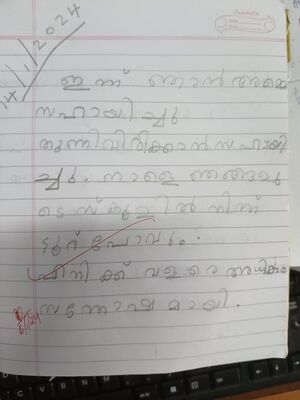 14/1/2024
ഇന്ന് ഞാൻ അമ്മെ
സഹായിച്ചു
തുണി വിരിക്കാൻ സഹായി
ച്ചു. നാളെ ഞങ്ങളു
ടെ സ്കൂളിൽ നിന്ന്
ടൂറ് പോവും.
എനിക്ക് വളരെ അധികം
സന്തോഷമായി.